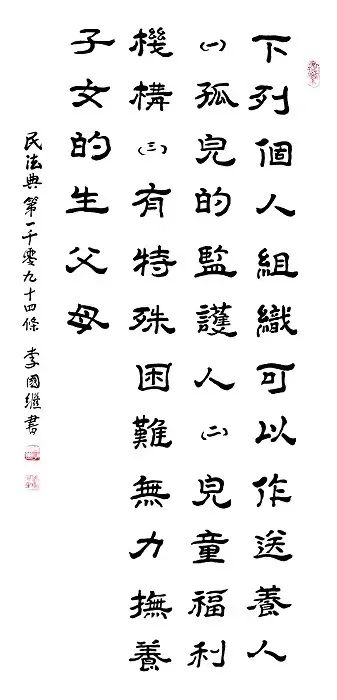 下列個人組織可以作送養人
㈠孤兒的監護人㈡兒童福利
機構㈢有特殊困難無力撫養
子女的生父母
民法典第一千零九十四條 李國繼書